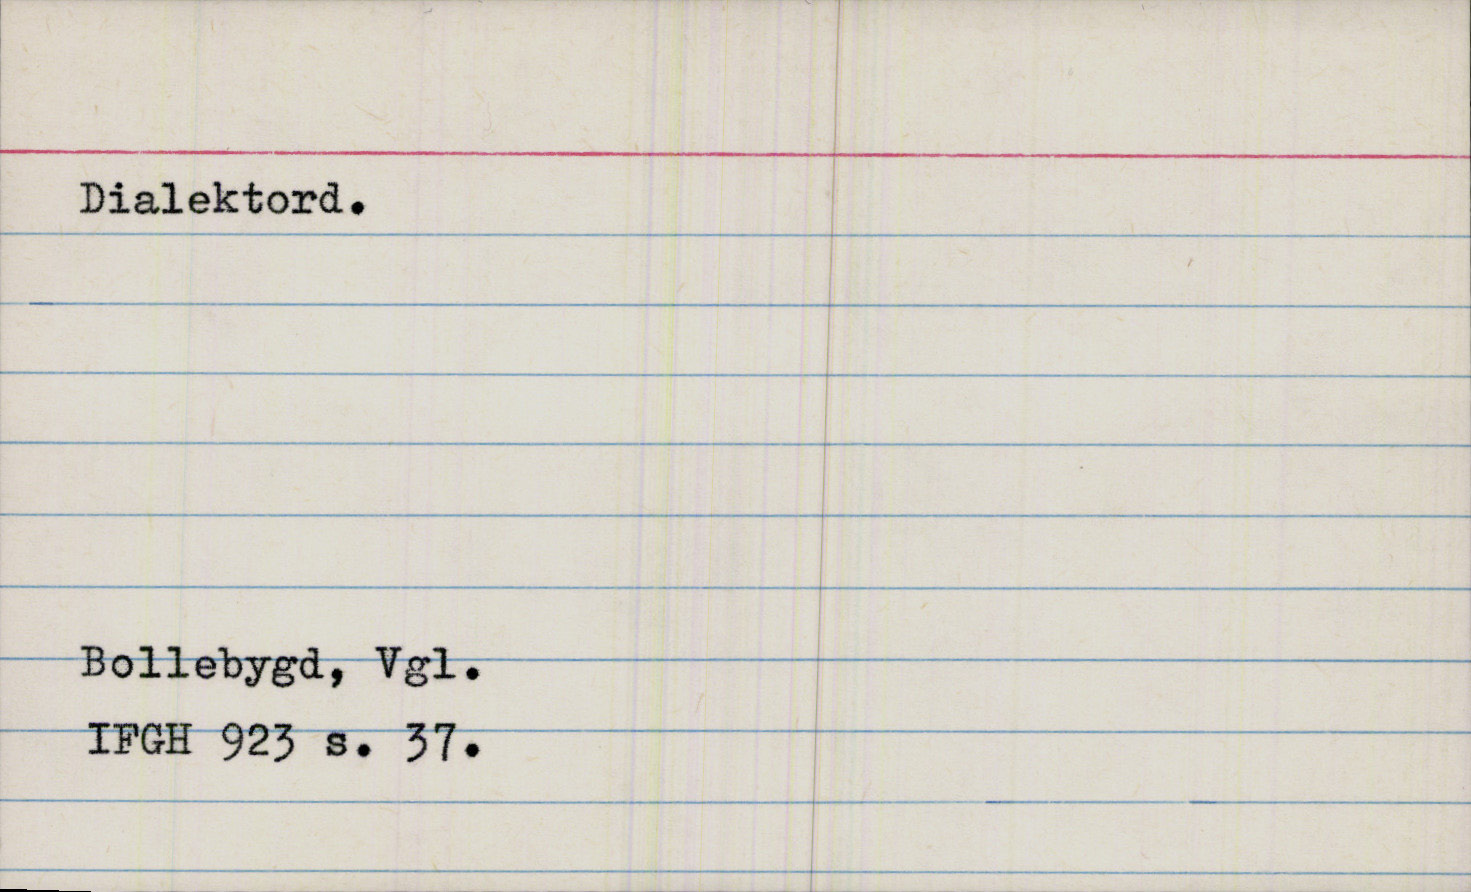 Dialektord.
Bollebygd, Vgl.
IFGH 923 s. 37.